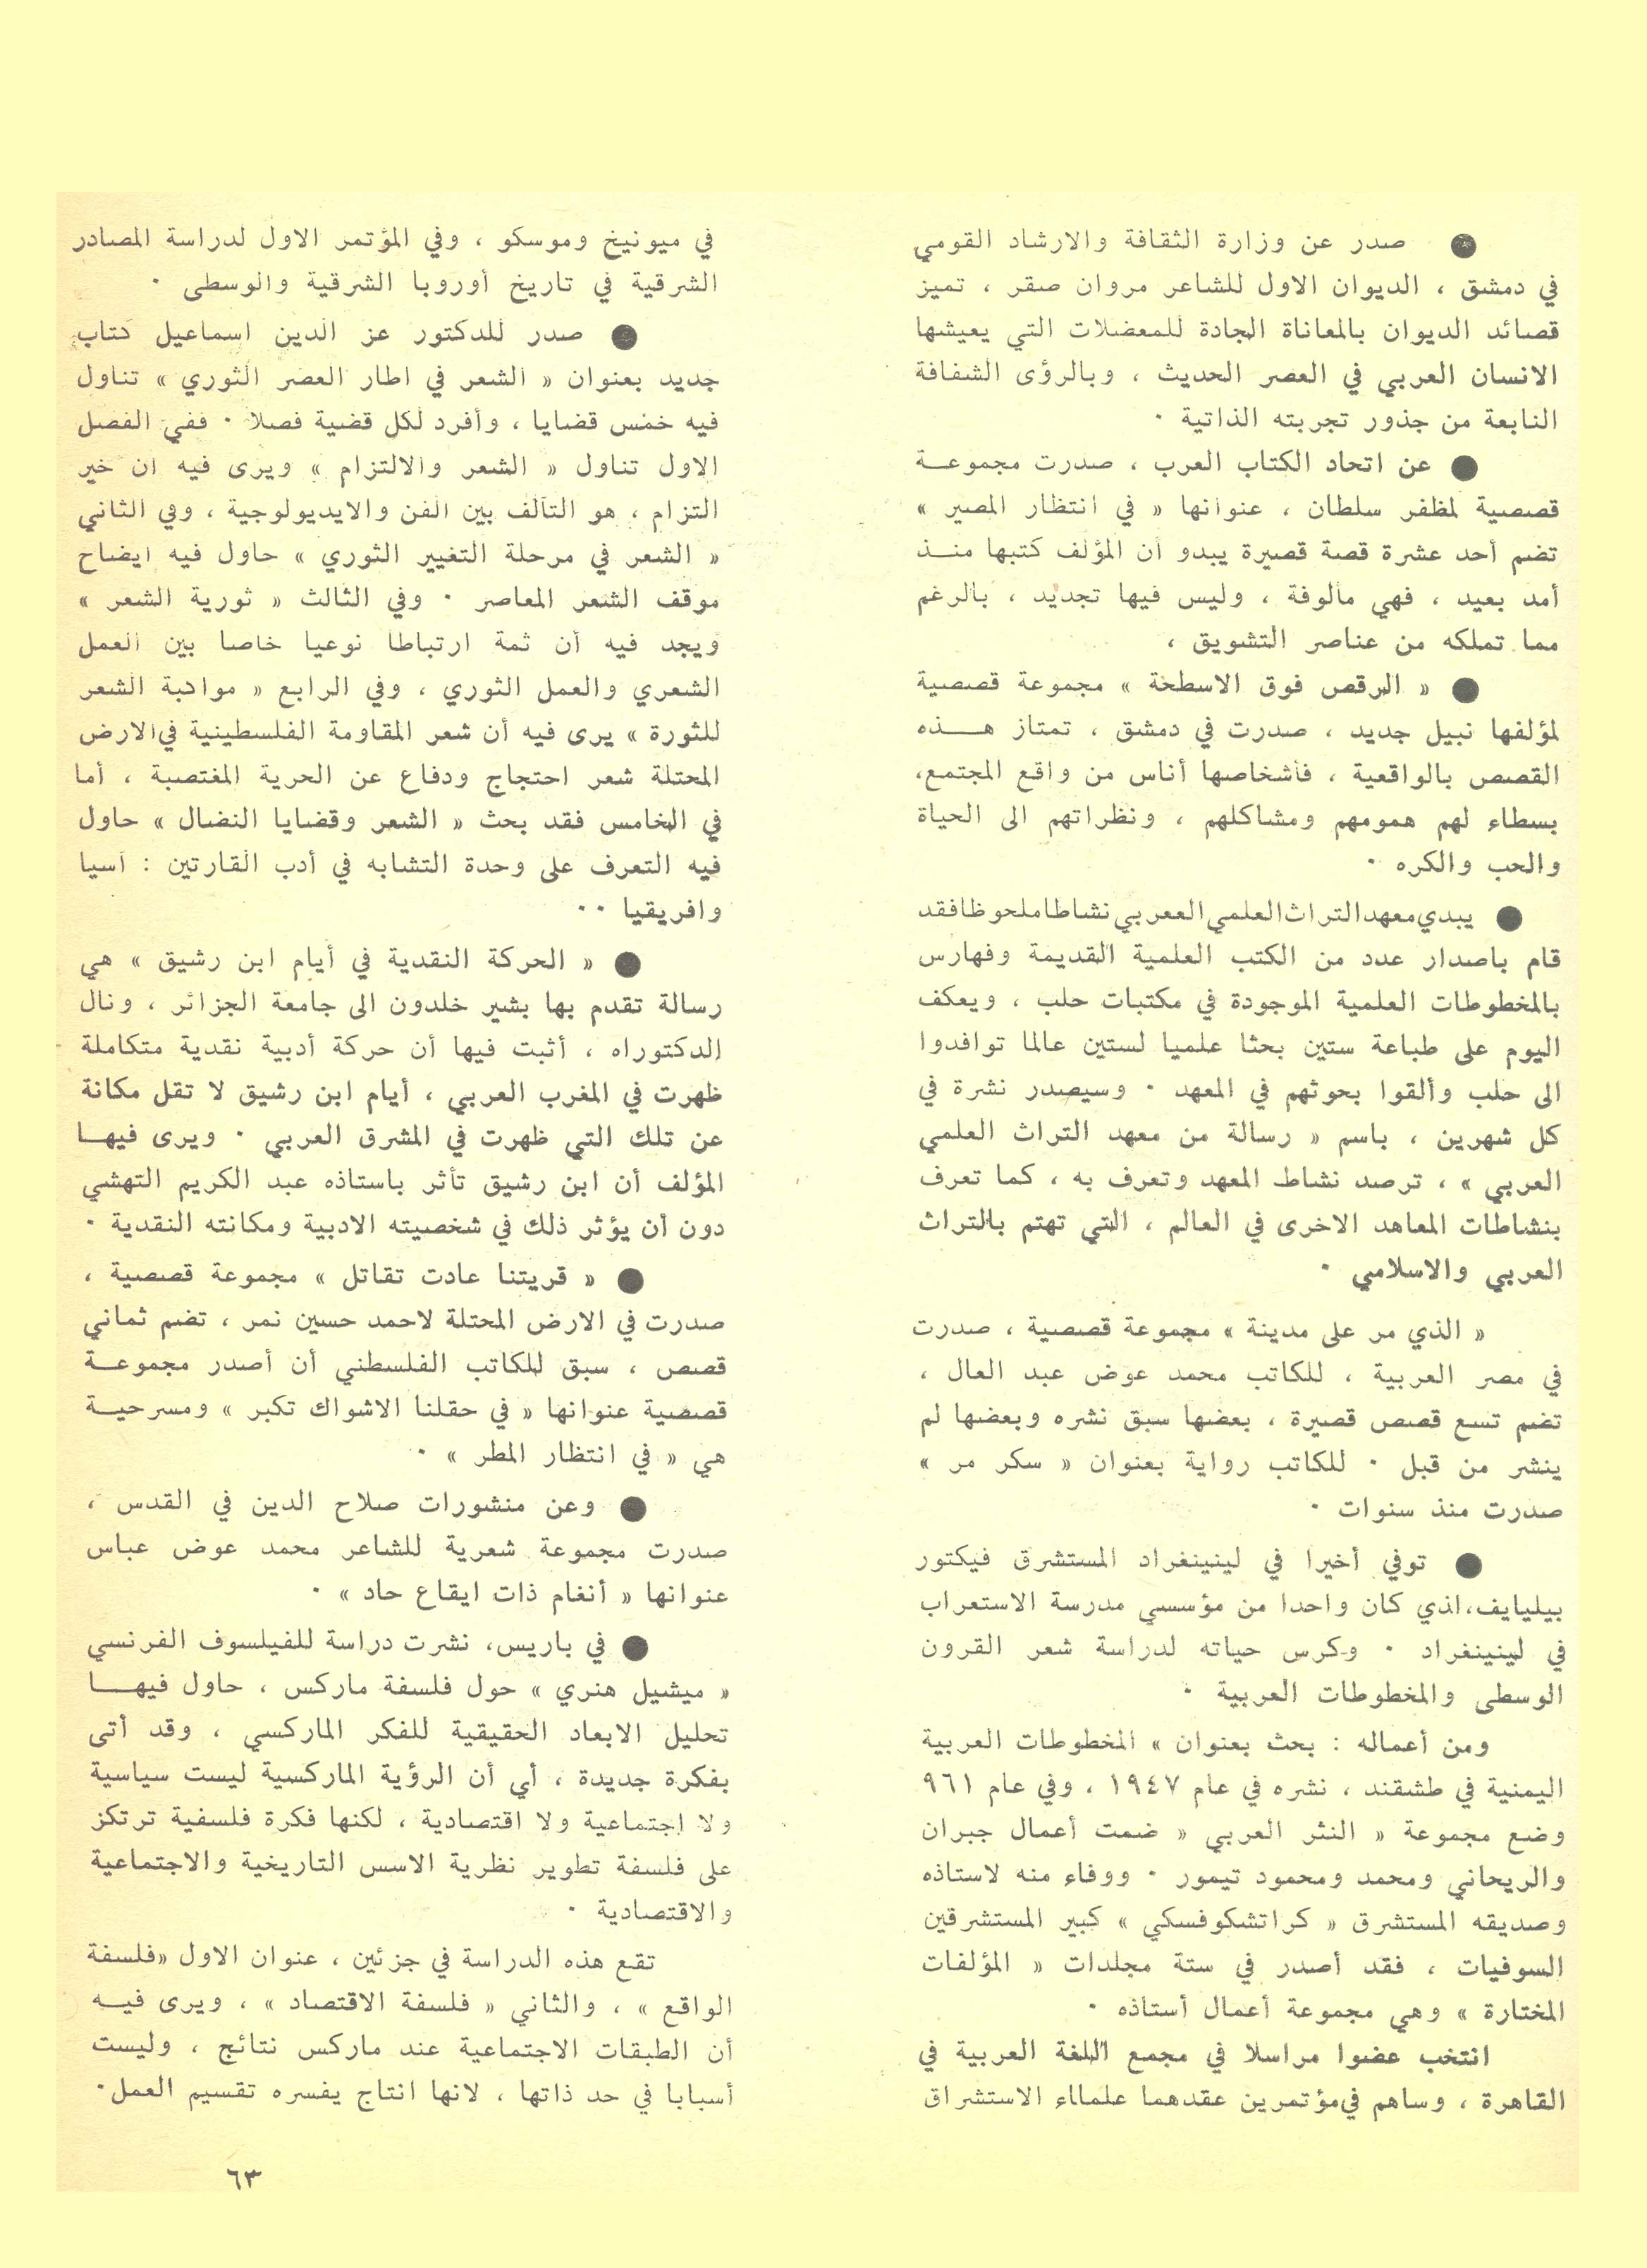 ● صدر عن وزارة الثقافة والارشاد القومي
في دمشق ، الديوان الاول للشاعر مروان صقر ، تميز
قصائد الديوان بالمعاناة الجادة للمعضلات التي يعيشها
الانسان العربي في العصر الحديث ، وبالرؤى الشفافة
النابعة من جذور تجربته الذاتية ٠
● عن اتحاد الكتاب العرب ، صدرت مجموعة
قصصية لمظفر سلطان ، عنوانها « في انتظار المصير »
تضم أحد عشرة قصة قصيرة يبدو أن المؤلف كتبها منذ
أمد بعيد ، فهي مألوفة ، وليس فيها تجديد ، بالرغم
مما تملكه من عناصر التشويق ،
● « الرقص فوق الاسطحة » مجموعة قصصية
لمؤلفها نبيل جديد ، صدرت في دمشق ، تمتاز هذه
القصص بالواقعية ، فأشخاصها أناس من واقع المجتمع،
بسطاء لهم همومهم ومشاكلهم ، ونظراتهم الى الحياة
والحب والكره ٠
● يبدي معهد التراث العلمي العربي نشاطا ملحوظا فقد
قام باصدار عدد من الكتب العلمية القديمة وفهارس
بالمخطوطات العلمية الموجودة في مكتبات حلب ، ويعكف
اليوم على طباعة ستين بحثا علميا لستين عالما توافدوا
الى حلب وألقوا بحوثهم في المعهد ٠ وسيصدر نشرة في
كل شهرين ، باسم « رسالة من معهد التراث العلمي
العربي » ، ترصد نشاط المعهد وتعرف به ، كما تعرف
بنشاطات المعاهد الاخرى في العالم ، التي تهتم بالتراث
العربي والاسلامي ٠
« الذي مر على مدينة » مجموعة قصصية ، صدرت
في مصر العربية ، للكاتب محمد عوض عبد العال ،
تضم تسع قصص قصيرة ، بعضها سبق نشره وبعضها لم
ينشر من قبل ٠ للكاتب رواية بعنوان « سكر مر »
صدرت منذ سنوات ٠
● توفي أخيرا في لينينغراد المستشرق فيكتور
بيليايف، الذي كان واحدا من مؤسسي مدرسة الاستعراب
في لينينغراد ٠ وكرس حياته لدراسة شعر القرون
الوسطى والمخطوطات العربية ٠
ومن أعماله : بحث بعنوان » المخطوطات العربية
اليمنية في طشقند ، نشره في عام ١٩٤٧ ، وفي عام ٩٦١
وضع مجموعة « النثر العربي « ضمت أعمال جبران
والريحاني ومحمد ومحمود تيمور ٠ ووفاء منه لاستاذه
وصديقه المستشرق « كراتشكوفسكي » كبير المستشرقين
السوفيات ، فقد أصدر في ستة مجلدات « المؤلفات
المختارة » وهي مجموعة أعمال أستاذه ٠
انتخب عضوا مراسلا في مجمع اللغة العربية في
القاهرة ، وساهم في مؤتمرين عقدهما علمااء الاستشراق
في ميونيخ وموسكو ، وفي المؤتمر الاول لدراسة المصادر
الشرقية في تاريخ أوروبا الشرقية والوسطى ٠
● صدر للدكتور عز الدين اسماعيل كتاب
جديد بعنوان « الشعر في اطار العصر الثوري » تناول
فيه خمس قضايا ، وأفرد لكل قضية فصلا ٠ ففي الفصل
الاول تناول « الشعر والالتزام » ويرى فيه ان خير
التزام ، هو التآلف بين الفن والايديولوجية ، وفي الثاني
« الشعر في مرحلة التغيير الثوري » حاول فيه ايضاح
موقف الشعر المعاصر ٠ وفي الثالث « ثورية الشعر »
ويجد فيه أن ثمة ارتباطا نوعيا خاصا بين العمل
الشعري والعمل الثوري ، وفي الرابع « مواكبة الشعر
للثورة » يرى فيه أن شعر المقاومة الفلسطينية في الارض
المحتلة شعر احتجاج ودفاع عن الحرية المغتصبة ، أما
في الخامس فقد بحث « الشعر وقضايا النضال » حاول
فيه التعرف على وحدة التشابه في أدب القارتين : آسيا
وافريقيا ٠٠
● « الحركة النقدية في أيام ابن رشيق » هي
رسالة تقدم بها بشير خلدون الى جامعة الجزائر ، ونال
الدكتوراه ، أثبت فيها أن حركة أدبية نقدية متكاملة
ظهرت في المغرب العربي ، أيام ابن رشيق لا تقل مكانة
عن تلك التي ظهرت في المشرق العربي ٠ ويرى فيها
المؤلف أن ابن رشيق تأثر باستاذه عبد الكريم التهشي
دون أن يؤثر ذلك في شخصيته الادبية ومكانته النقدية ٠
● « قريتنا عادت تقاتل » مجموعة قصصية ،
صدرت في الارض المحتلة لاحمد حسين نمر ، تضم ثماني
قصص ، سبق للكاتب الفلسطني أن أصدر مجموعة
قصصية عنوانها « في حقلنا الاشواك تكبر » ومسرحية
هي « في انتظار المطر » ٠
● وعن منشورات صلاح الدين في القدس ،
صدرت مجموعة شعرية للشاعر محمد عوض عباس
عنوانها « أنغام ذات ايقاع حاد » ٠
● في باريس، نشرت دراسة للفيلسوف الفرنسي
« ميشيل هنري » حول فلسفة ماركس ، حاول فيها
تحليل الابعاد الحقيقية للفكر الماركسي ، وقد أتى
بفكرة جديدة ، أي أن الرؤية الماركسية ليست سياسية
ولا اجتماعية ولا اقتصادية ، لكنها فكرة فلسفية ترتكز
على فلسفة تطوير نظرية الاسس التاريخية والاجتماعية
والاقتصادية ٠
تقع هذه الدراسة في جزئين ، عنوان الاول «فلسفة
الواقع » ، والثاني « فلسفة الاقتصاد » ، ويرى فيه
أن الطبقات الاجتماعية عند ماركس نتائج ، وليست
أسبابا في حد ذاتها ، لانها انتاج يفسره تقسيم العمل٠
٦٣